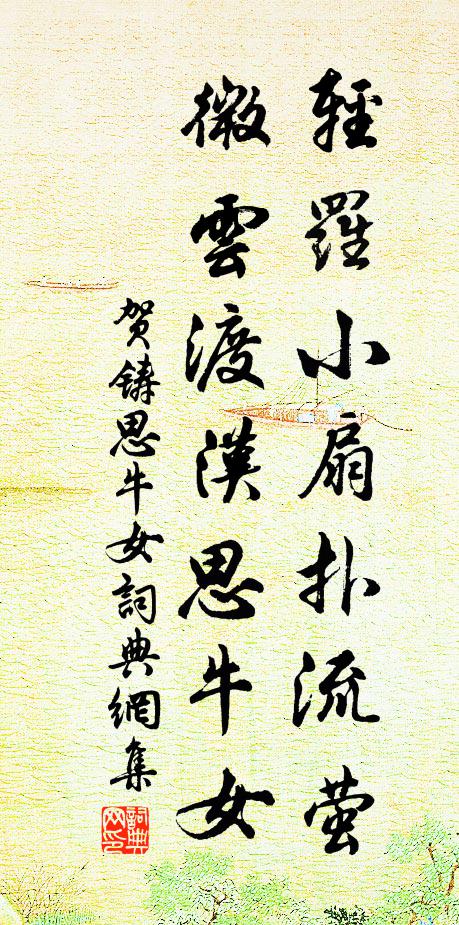 輕羅小扇扑流萤
微雲渡漢思牛女
贺鑄思牛女詞典網集
詞典網印